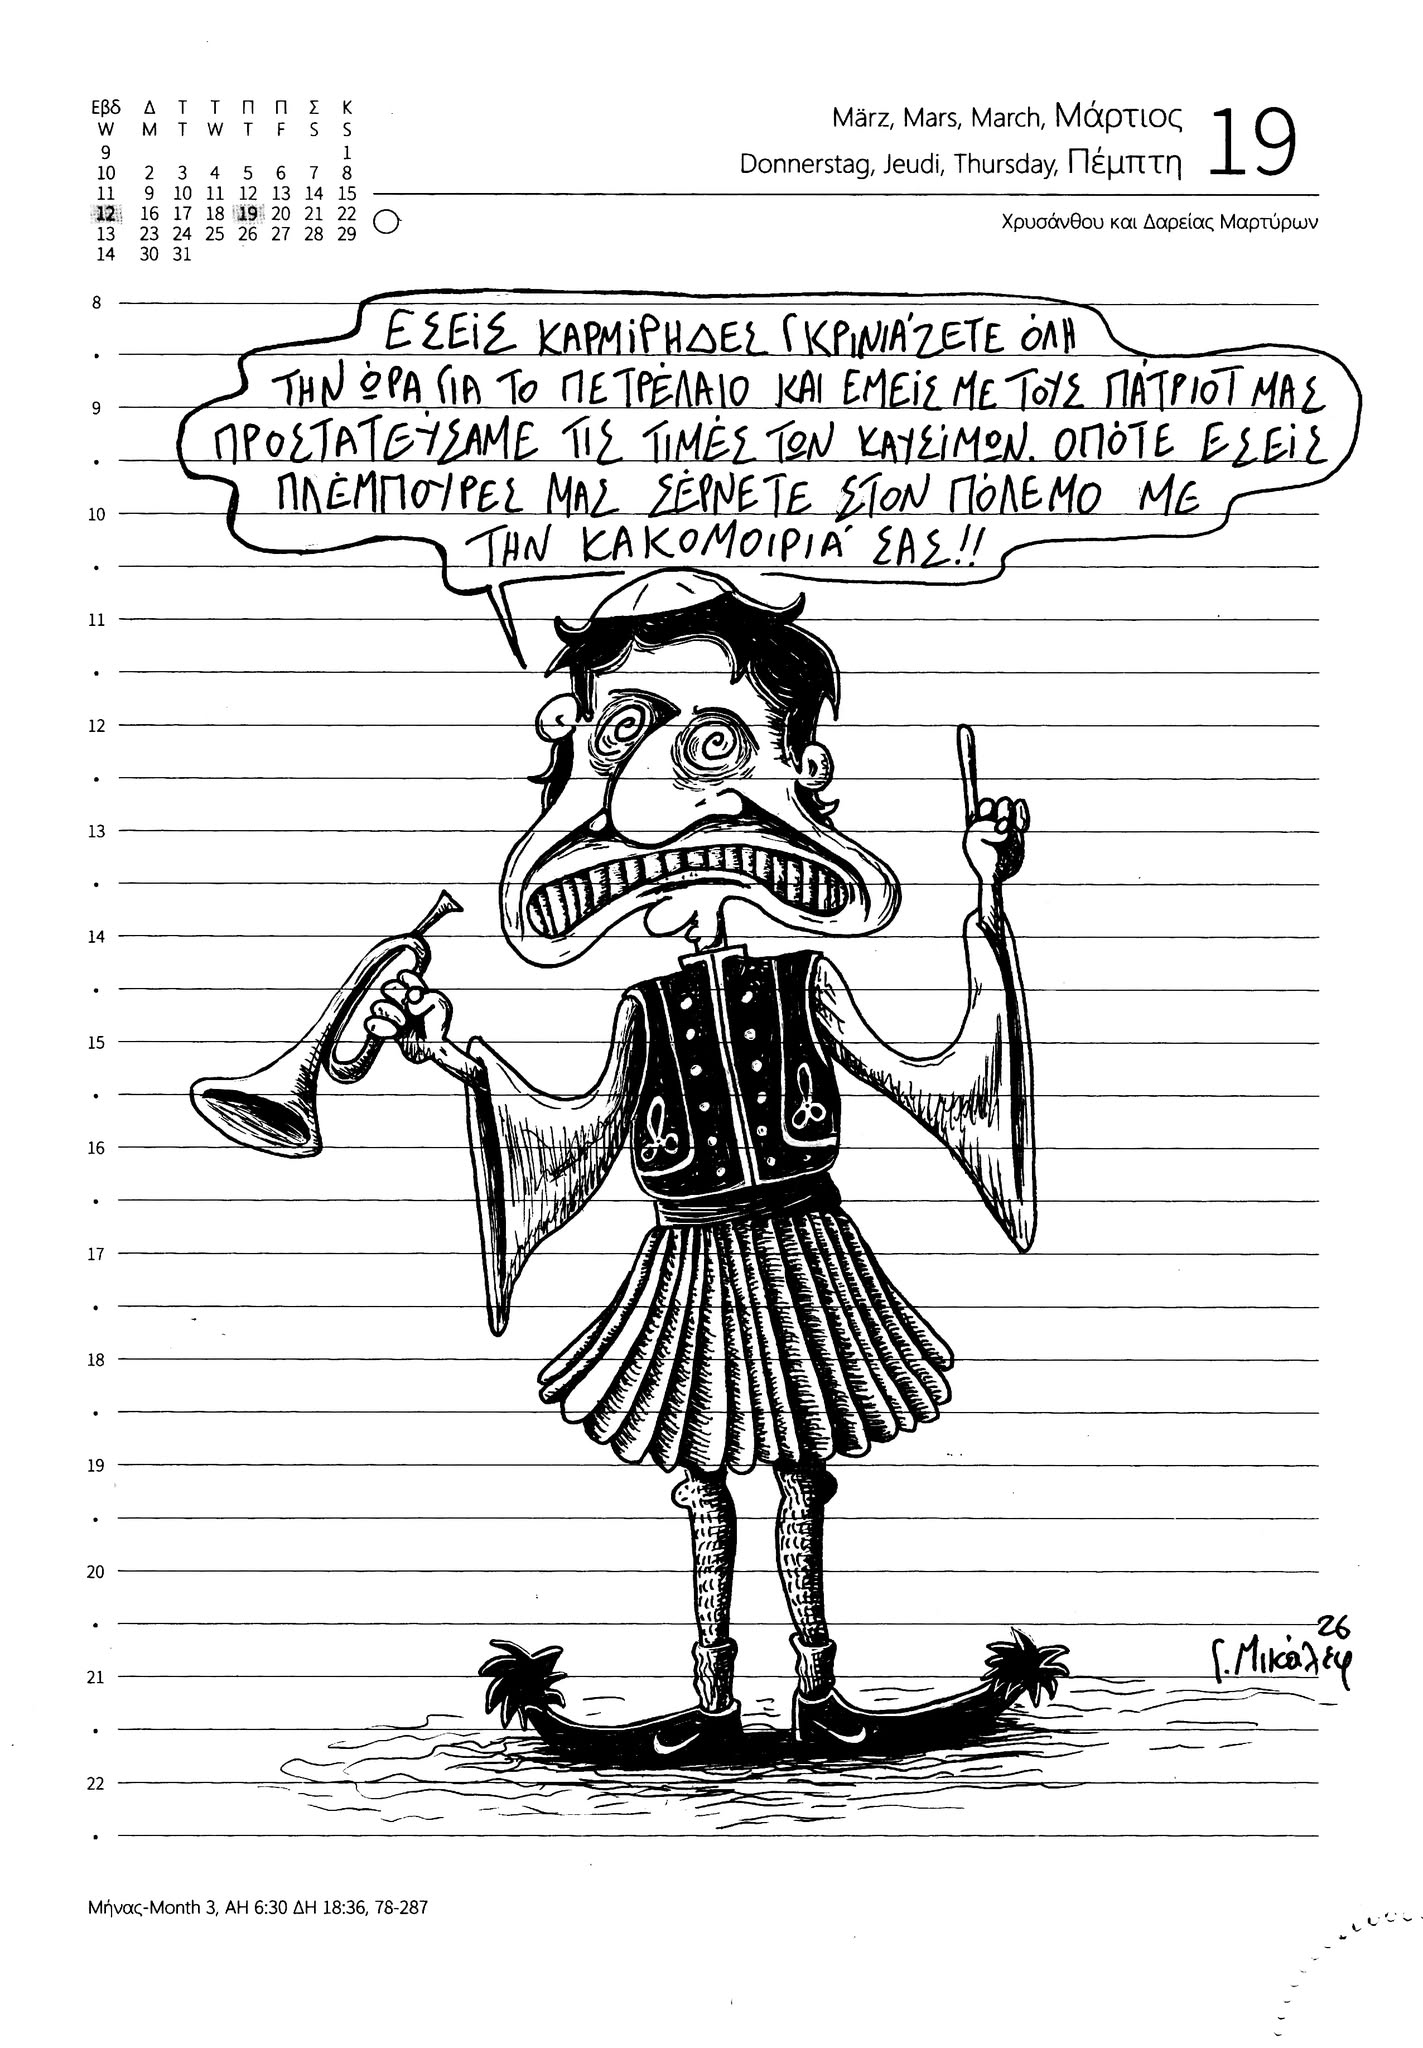 Εβδ Δ Τ Τ Π Π Σ Κ
W M T W T F S S
9 1
10 2 3 4 5 6 7 8
11 9 10 11 12 13 14 15
12 16 17 18 19 20 21 22
13 23 24 25 26 27 28 29
14 30 31
März, Mars, March, Μάρτιος
Donnerstag, Jeudi, Thursday, Πέμπτη
19
Χρυσάνθου και Δαρείας Μαρτύρων
ΕΣΕΊΣ ΚΑΡΜΊΡΗΔΕΣ ΓΚΡΙΝΙΆΖΕΤΕ ΌΛΗ
ΤΗΝ ΏΡΑ ΓΙΑ ΤΟ ΠΕΤΡΈΛΑΙΟ ΚΑΙ ΕΜΕΊΣ ΜΕ ΤΟΥΣ ΠΆΤΡΙΟΤ ΜΑΣ
ΠΡΟΣΤΑΤΕΎΣΑΜΕ ΤΙΣ ΤΙΜΈΣ ΤΩΝ ΚΑΥΣΊΜΩΝ. ΟΠΌΤΕ ΕΣΕΊΣ
ΠΛΈΜΠΟΥΡΕΣ ΜΑΣ ΣΈΡΝΕΤΕ ΣΤΟΝ ΠΌΛΕΜΟ ΜΕ
ΤΗΝ ΚΑΚΟΜΟΙΡΙΆ ΣΑΣ!!
8
9
10
11
12
13
14
15
16
17
18
19
20
21
22
26
Γ. Μικάλεφ
Μήνας-Month 3, ΑΗ 6:30 ΔΗ 18:36, 78-287